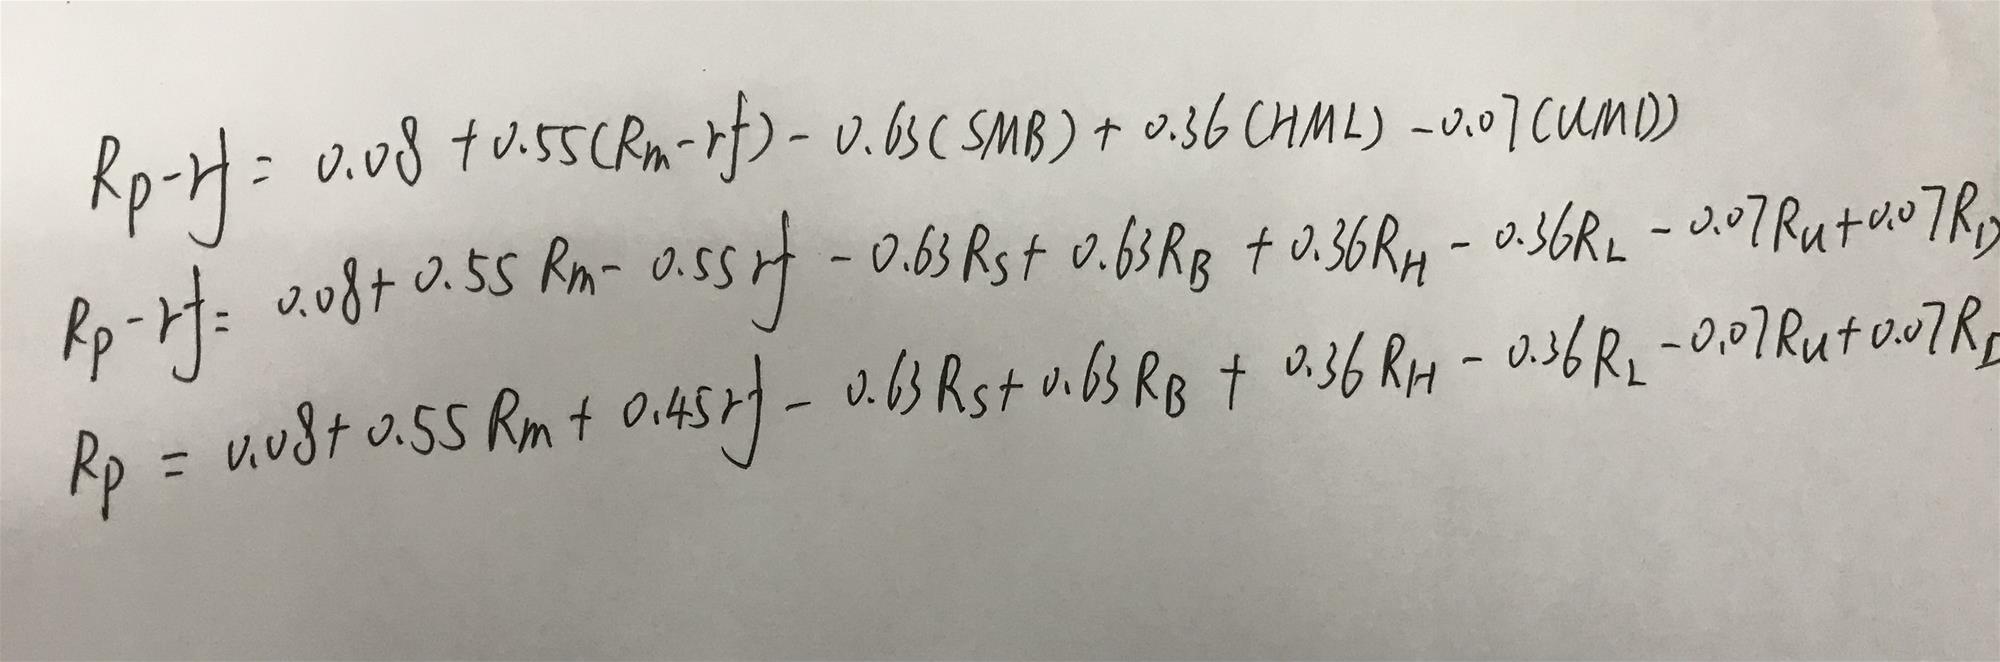 Rp-rf = 0.08 + 0.55(Rm-rf) - 0.63(SMB) + 0.36(HML) - 0.07(UMD)
Rp-rf = 0.08 + 0.55 Rm - 0.55 rf - 0.63 Rs + 0.63 RB + 0.36 RH - 0.36 RL - 0.07 Ru + 0.07 RD
Rp = 0.08 + 0.55 Rm + 0.45 rf - 0.63 Rs + 0.63 RB + 0.36 RH - 0.36 RL - 0.07 Ru + 0.07 RD